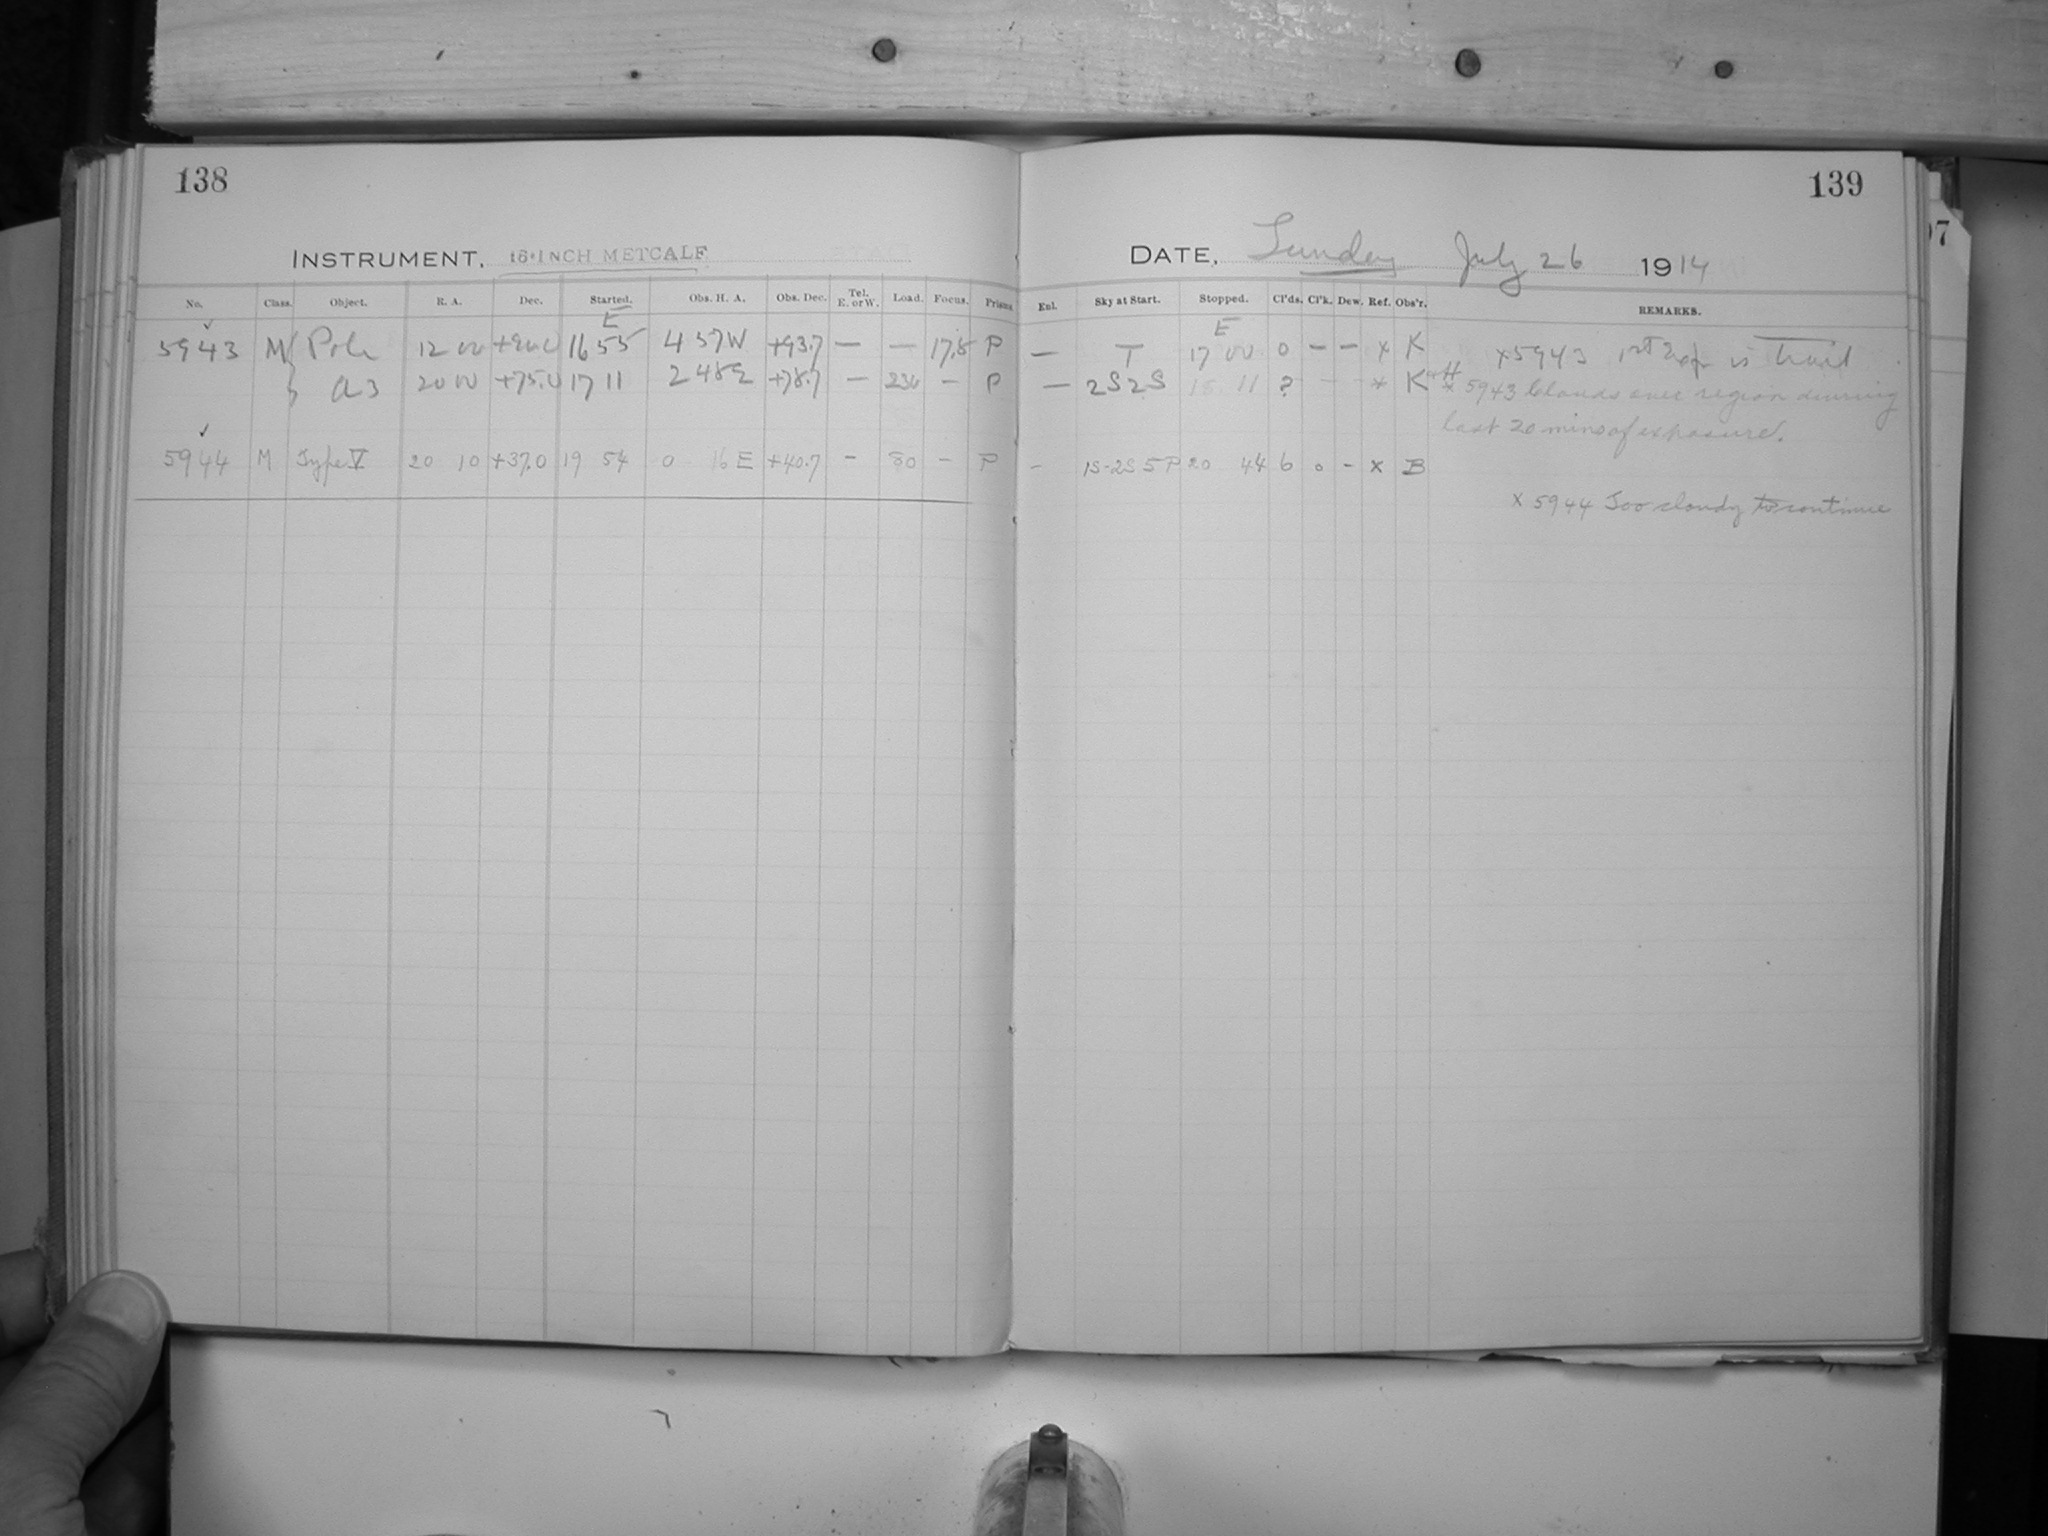 138
INSTRUMENT, 16-INCH METCALF
No. Class. Object. R. A. Dec. Started. Obs. H. A. Obs. Dec. Tel. E. or W. Load. Focus. Prisms
E
5943 M Pole 12 00 +90.0 16 55 4 57W +93.7 — — 17.8 P
a3 20 00 +75.0 17 11 2 48E +78.7 — 236 — P
5944 M Type V 20 10 +37.0 19 54 0 16 E +40.7 - 80 - P
139
DATE, Sunday July 26 1914
Enl. Sky at Start. Stopped. Cl'ds. Cl'k. Dew. Ref. Obs'r. REMARKS.
E
— T 17 00 0 — — x K x5943 1st Exp is Trail
— 2S2S 11 ? - - x K x 5943 Clouds over region during
last 20 mins of exposure.
- 1S-2S 5P 20 44 6 0 - x B
x 5944 Too cloudy to continue